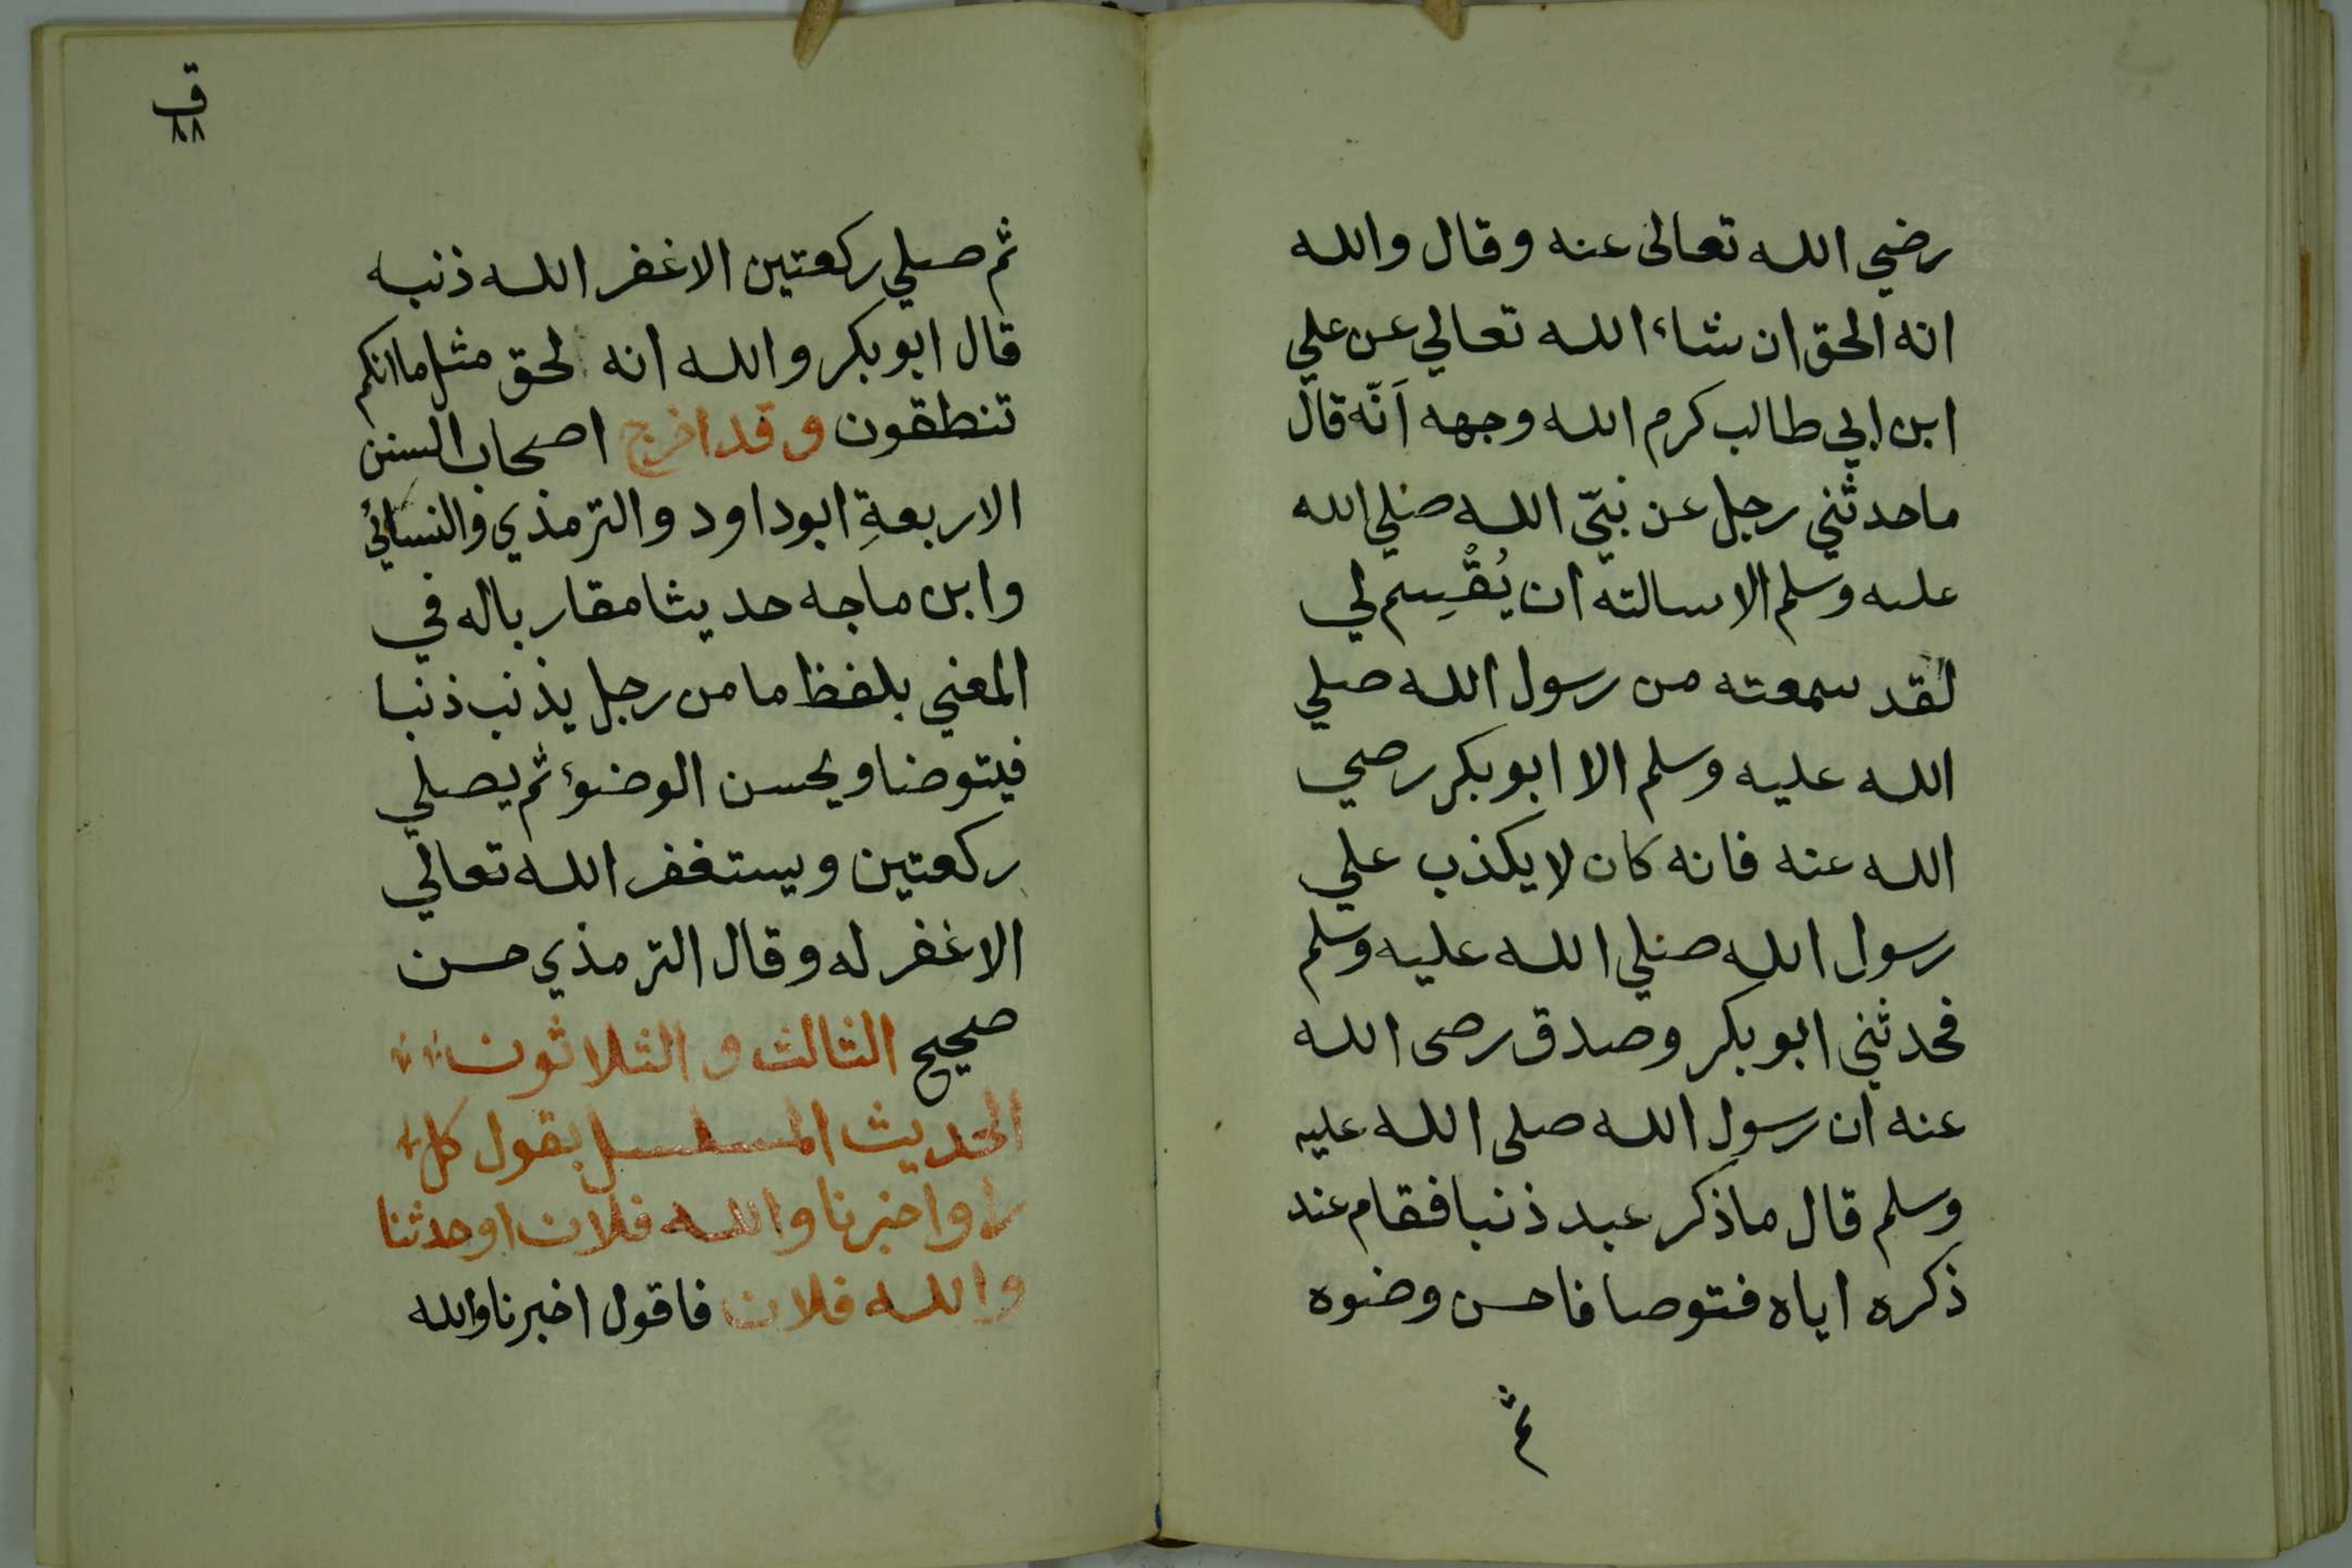 رضي الله تعالى عنه وقال والله
انه الحق ان شاء الله تعالي عن علي
ابن ابي طالب كرم الله وجهه اَنّه قال
ما حدثني رجل عن نبيّ الله صلي الله
عليه وسلم الا سالته ان يُقْسِم لي
لقد سمعته من رسول الله صلي
الله عليه وسلم الا ابو بكر رضي
الله عنه فانه كان لا يكذب علي
رسول الله صلي الله عليه وسلم
فحدثني ابو بكر وصدق رضى الله
عنه ان رسول الله صلى الله عليه
وسلم قال ما ذكر عبد ذنبا فقام عند
ذكره اياه فتوضا فاحسن وضوه
ثم
ق
٨٨
ثم صلي ركعتين الا غفر الله ذنبه
قال ابو بكر والله انه لحق مثل ما انكم
تنطقون وقد اخرج اصحاب السنن
الاربعةِ ابو داود والترمذي والنسائي
وابن ماجه حديثا مقاربا له في
المعني بلفظ ما من رجل يذنب ذنبا
فيتوضا ويحسن الوضؤ ثم يصلي
ركعتين ويستغفر الله تعالي
الا غفر له وقال الترمذي حسن
صحيح الثالث والثلاثون
الحديث المسلسل بقول كل
راو اخبرنا والله فلان او حدثنا
والله فلان فاقول اخبرنا والله